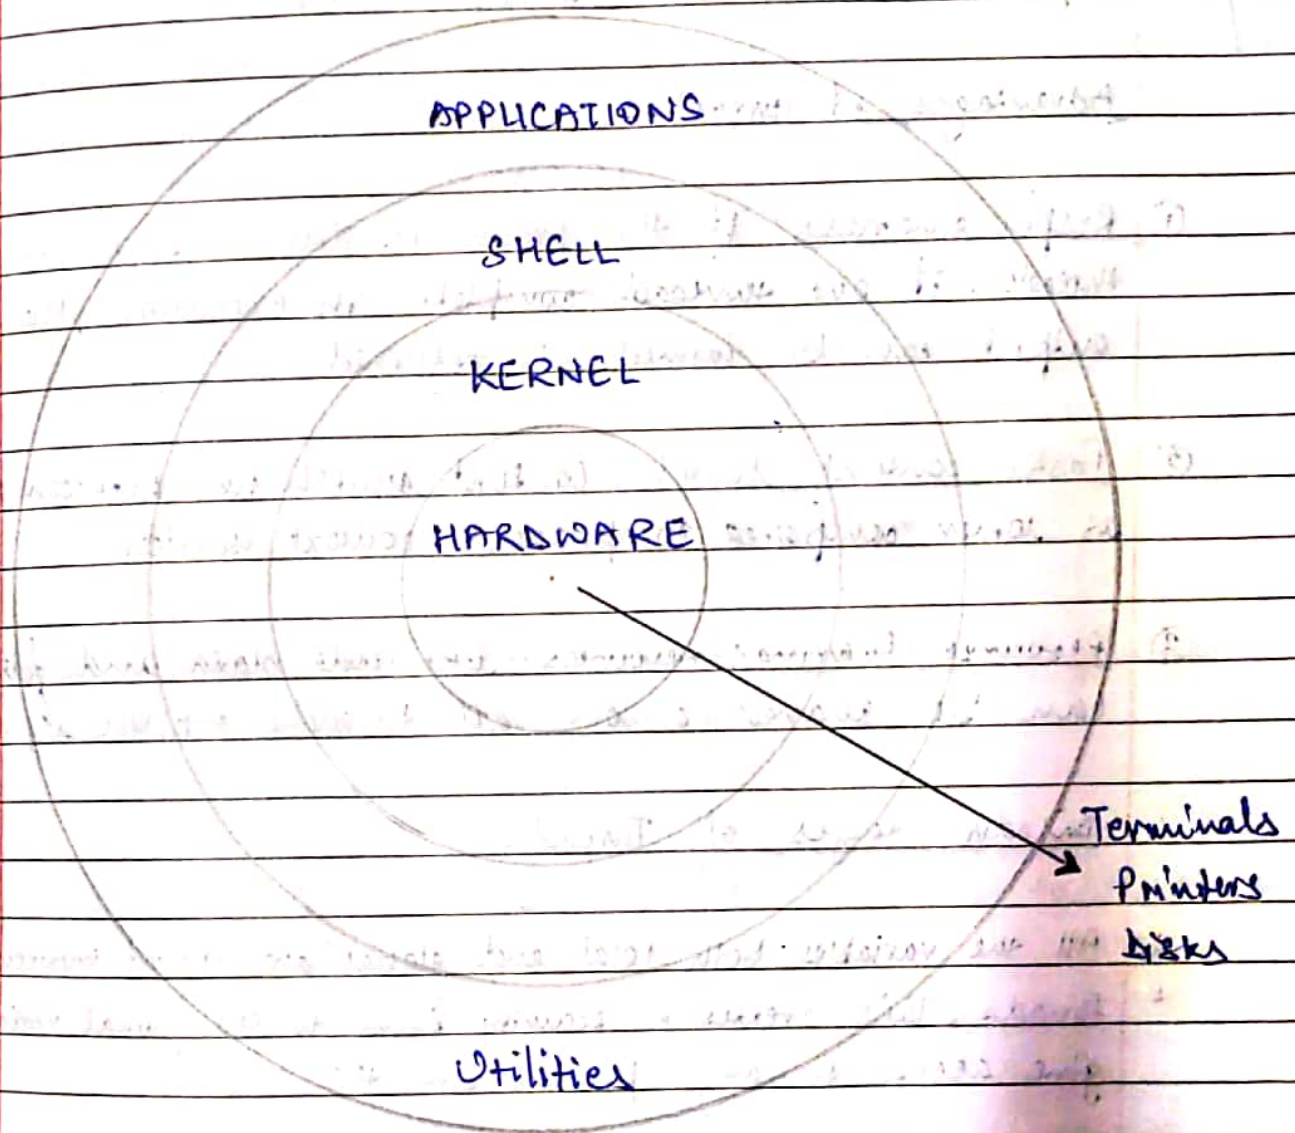 APPLICATIONS
SHELL
KERNEL
HARDWARE
Terminals
Printers
Disks
Utilities